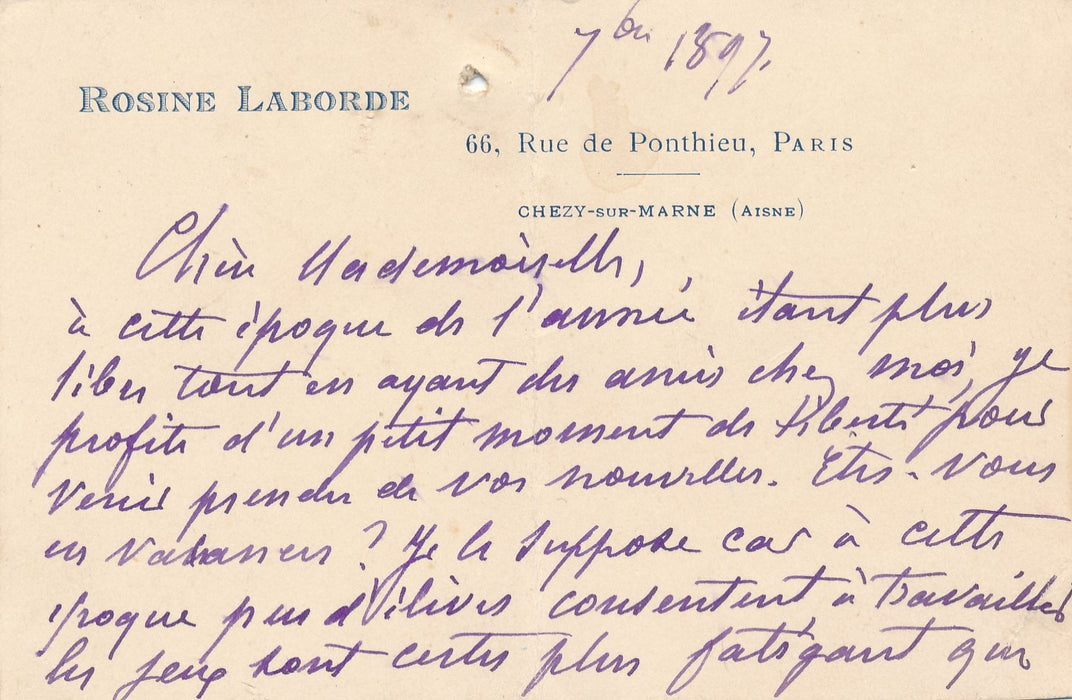 7bre 1897.
ROSINE LABORDE
66, Rue de Ponthieu, PARIS
CHEZY-SUR-MARNE (AISNE)
Chère Mademoiselle,
à cette époque de l'année étant plus
libre tout en ayant des amis chez moi, je
profite d'un petit moment de liberté pour
venir prendre de vos nouvelles. Etes-vous
en vacances ? Je le suppose car à cette
époque peu d'élèves consentent à travailler
les jeux sont certes plus fatigant que